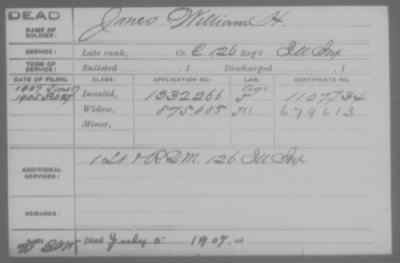 DEAD
NAME OF SOLDIER: Jones, William H.
SERVICE: Late rank, Co. E, 126 Reg't Ill Inf
TERM OF SERVICE: Enlisted , 1 Discharged , 1
DATE OF FILING. CLASS. APPLICATION NO. LAW. CERTIFICATE NO.
1907 Invalid, 1332266 1107734
1905 Widow, 875.005 679613
Minor,
ADDITIONAL SERVICES: 1 Lt & R.D.M. 126 Ill Inf
REMARKS:
Died July 5 1907